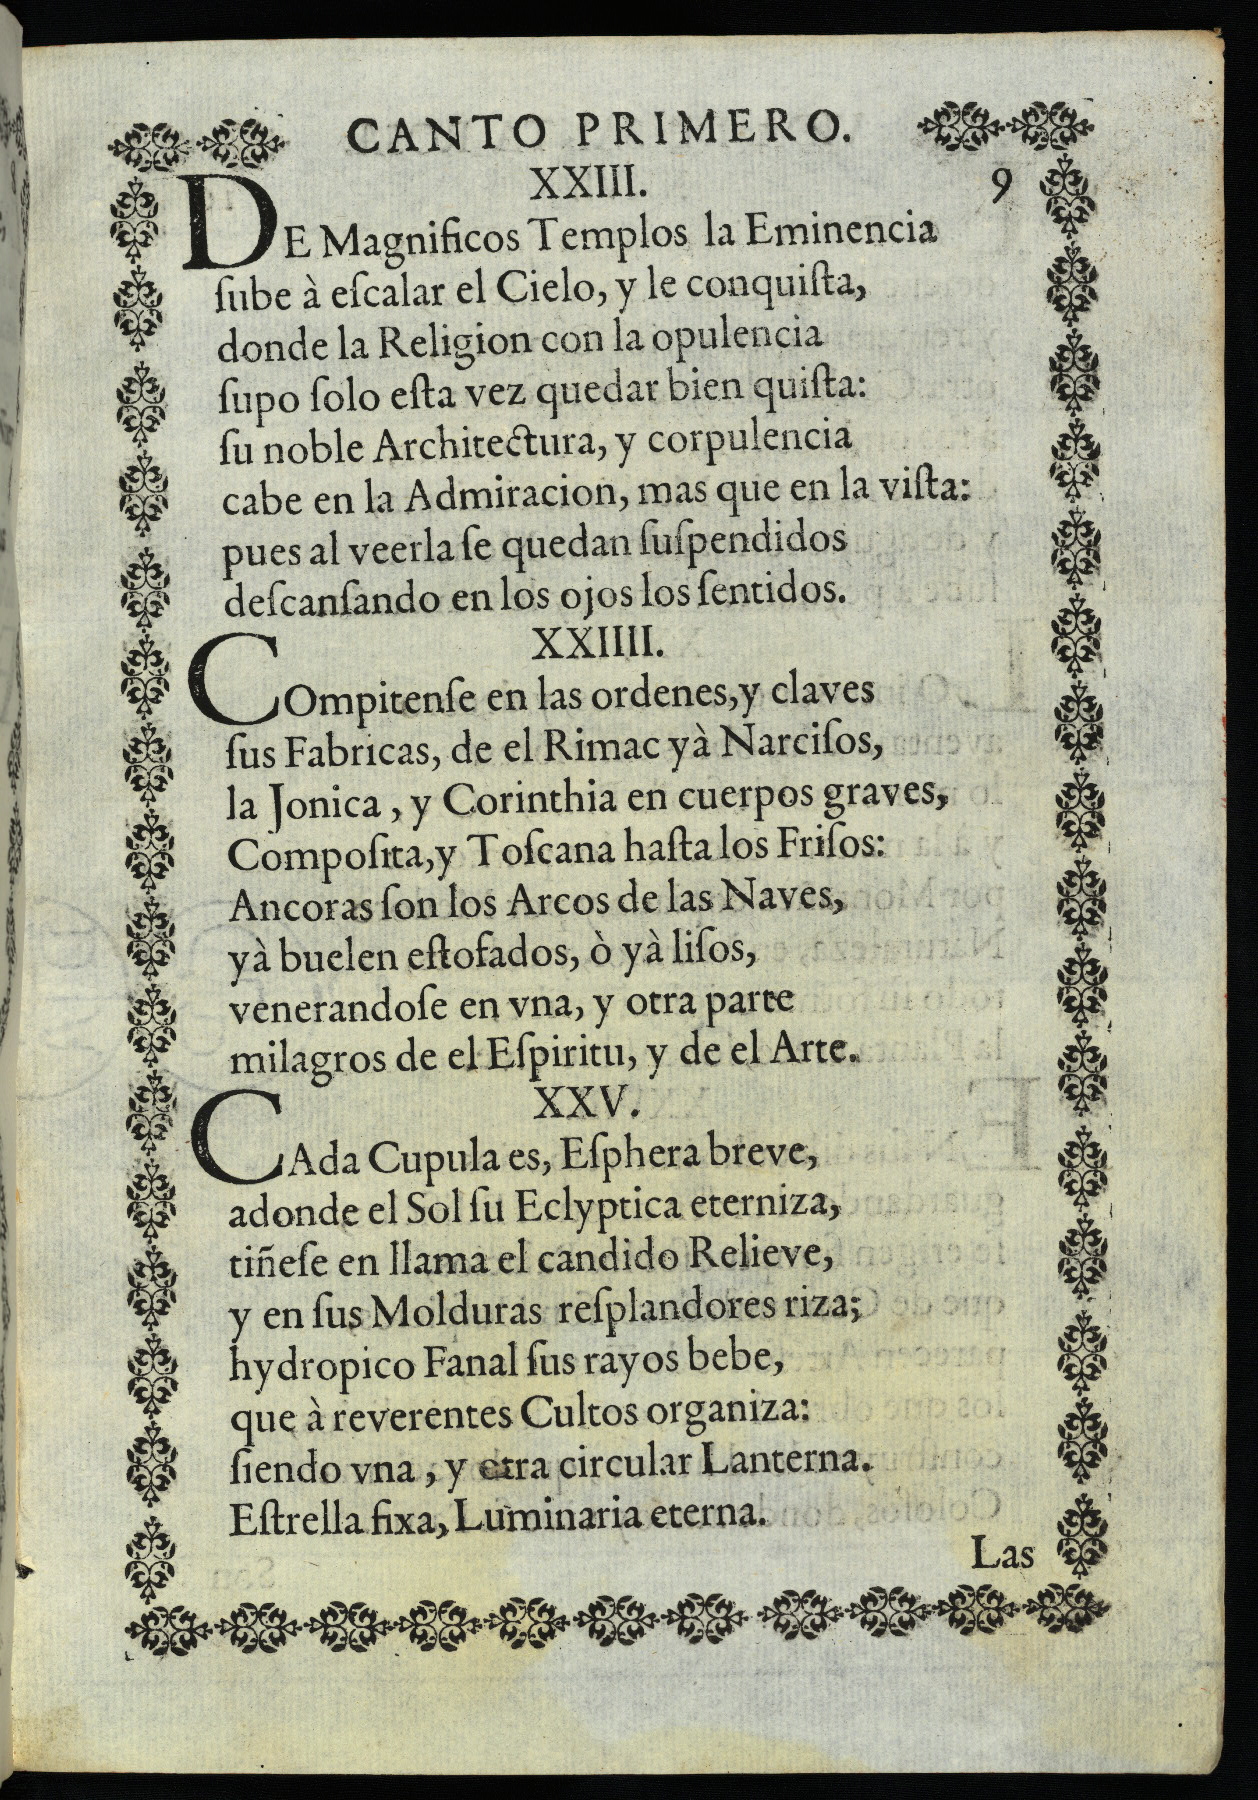 CANTO PRIMERO.
XXIII. 9
DE Magnificos Templos la Eminencia
ſube à eſcalar el Cielo, y le conquiſta,
donde la Religion con la opulencia
ſupo ſolo eſta vez quedar bien quiſta:
ſu noble Architectura, y corpulencia
cabe en la Admiracion, mas que en la viſta:
pues al veerla ſe quedan ſuſpendidos
deſcanſando en los ojos los ſentidos.
XXIIII.
COmpitenſe en las ordenes, y claves
ſus Fabricas, de el Rimac yà Narciſos,
la Jonica, y Corinthia en cuerpos graves,
Compoſita, y Toſcana haſta los Friſos:
Ancoras ſon los Arcos de las Naves,
yà buelen eſtofados, ò yà liſos,
venerandoſe en vna, y otra parte
milagros de el Eſpiritu, y de el Arte.
XXV.
CAda Cupula es, Eſphera breve,
adonde el Sol ſu Eclyptica eterniza,
tiñeſe en llama el candido Relieve,
y en ſus Molduras reſplandores riza;
hydropico Fanal ſus rayos bebe,
que à reverentes Cultos organiza:
ſiendo vna, y otra circular Lanterna.
Eſtrella fixa, Luminaria eterna.
Las